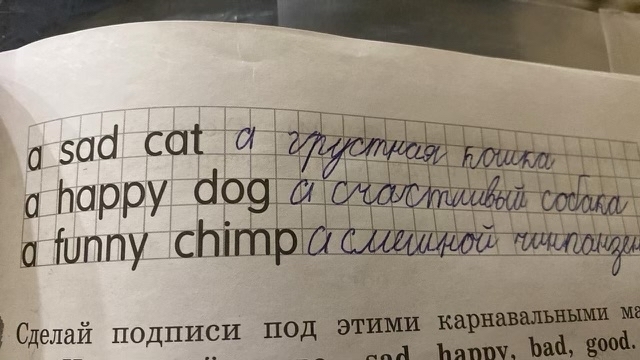 a sad cat а грустная кошка
a happy dog а счастливый собака
a funny chimp а смешной
Сделай подписи под этими карнавальными
sad, happy, bad, good.